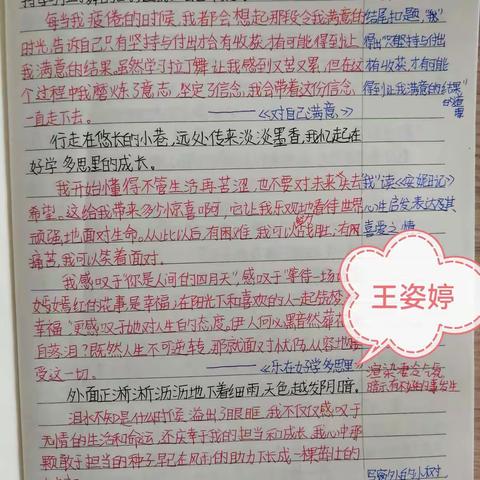 每当我疲倦的时候,我都会想起那段令我满意的
时光,告诉自己只有坚持与付出才会有收获,才有可能得到让
我满意的结果。虽然学习拉丁舞让我感到又苦又累,但在这
个过程中我磨炼了意志,坚定了信念,我会带着这份信念
一直走下去。
——《对自己满意》
结尾扣题,"我"
得出"只有坚持与付出
才会有收获,才有可能
得到让我满意的结果"
的道理
行走在悠长的小巷,远处传来淡淡墨香,我忆起在
好学多思里的成长。
我开始懂得不管生活再苦涩,也不要对未来失去
希望。这给我带来多少惊喜啊,它让我乐观地看待世界,
顽强地面对生命。从此以后,有困难,我可以战胜;有
痛苦,我可以笑着面对。
"我"读《安妮日记》
心生启发,表达及其
喜爱之情
我感叹于"你是人间的四月天",感叹于"等待一场
嫣嫣红的花事是幸福,在阳光下和喜欢的人一起
幸福",更感叹于她对人生的态度,伊人何必黯然
自落泪?既然人生不可逆转,那就面对忧伤,从容地
受这一切。
——《乐在好学多思里》
王姿婷
外面正淅淅沥沥地下着细雨,天色越发阴暗。
暗示有不好的事发生
泪水不知是什么时候溢出了眼眶,我不仅仅感叹于
无情的生活和命运,不庆幸于我的担当和成长,我心中那
颗敢于担当的种子,早已在风雨的助力下长成一棵茁壮的